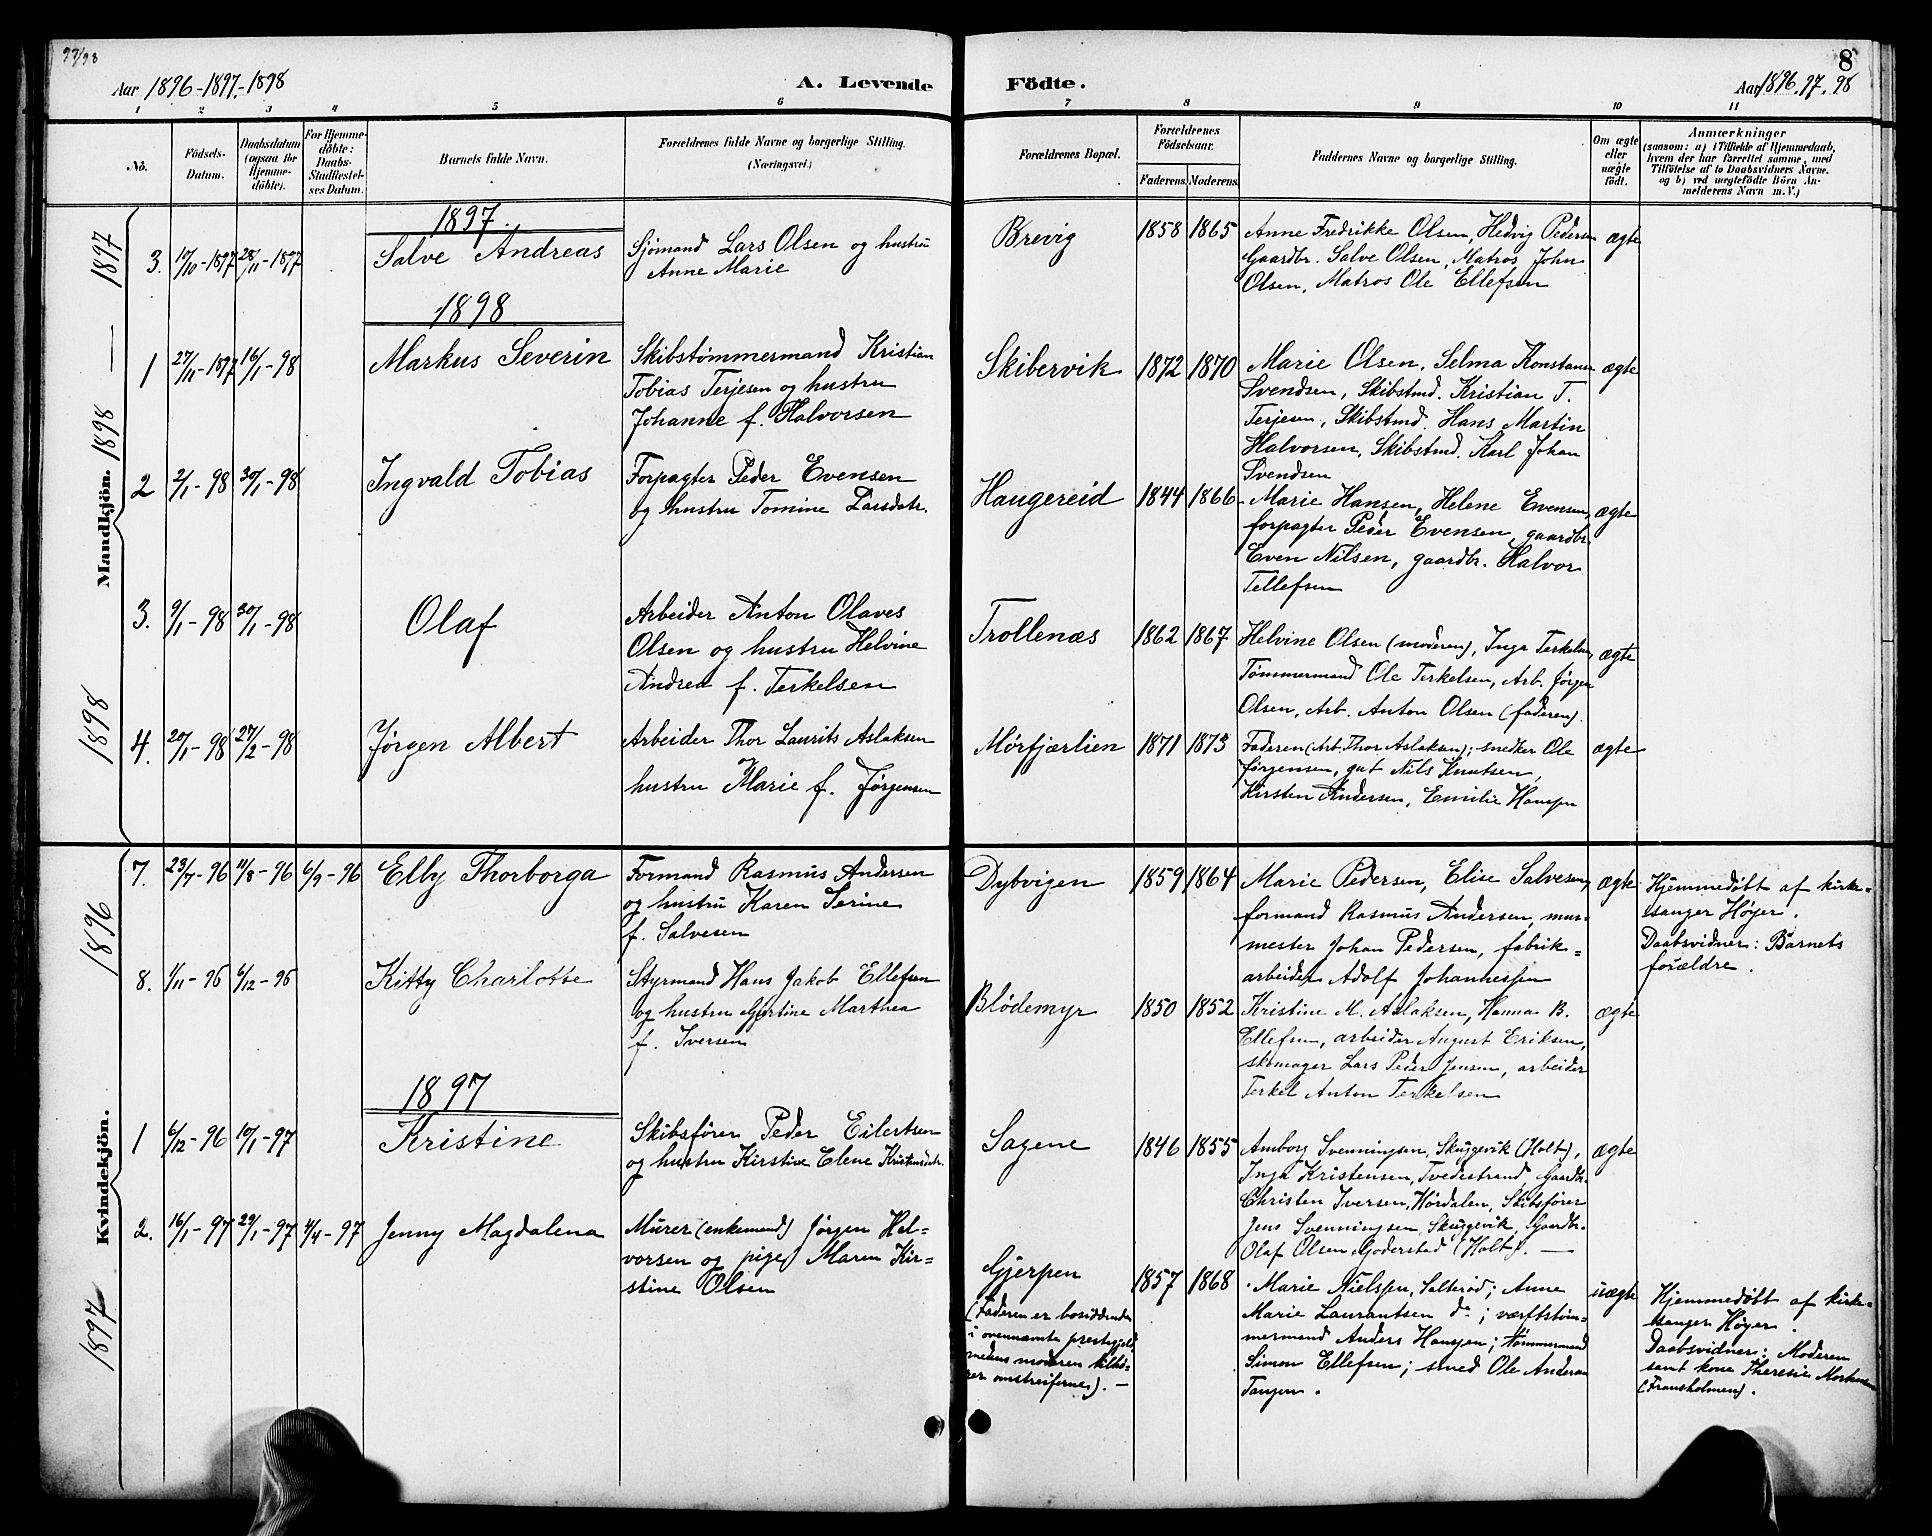 97/98
Aar 1896-1897-1898
A. Levende
Födte.
Aar 1896.97.98
8
1 2 3 4 5 6 7 8 9 10 11
No.
Födsels-
Datum.
Daabsdatum
(ogsaa for
Hjemme-
döbte).
For Hjemme-
döbte:
Daabs-
Stadfæstel-
ses Datum.
Barnets fulde Navn.
Forældrenes fulde Navne og borgerlige Stilling.
(Næringsvei.)
Forældrenes Bopæl.
Forældrenes
Födselsaar.
Faderens. Moderens.
Faddernes Navne og borgerlige Stilling.
Om ægte
eller
uægte
födt.
Anmærkninger
(sansom: a) i Tilfælde af Hjemmedaab,
hvem der har forrettet samme, med
Tilföielse af to Daabsvidners Navne,
og b) ved uægtefödte Börn An-
melderens Navn m. V.)
Mandkjön. 1898 — 1897
1898
1897.
3. 17/10-1897 28/11-1897
Salve Andreas
Sjömand Lars Olsen og hustru
Anne Marie
Brevig
1858 1865
Anne Fredrikke Olsen, Hedvig Pedersen
Gaardbr. Salve Olsen, Matros John
Olsen, Matros Ole Ellefsen
ægte
1898
1 27/11-1897 16/1-98
Markus Severin
Skibstømmermand Kristian
Tobias Terjesen og hustru
Johanne f. Halvorsen
Skibervik
1872 1870
Marie Olsen, Selma Konstanse
Svendsen, Skibstmd. Kristian T.
Terjesen, Skibstmd. Hans Martin
Halvorsen, Skibstmd. Karl Johan
Svendsen
ægte
2 2/1-98 30/1-98
Ingvald Tobias
Forpagter Peder Evensen
og hustru Tomine Larsdatr.
Haugereid
1844 1866
Marie Hansen, Helene Evensen,
forpagter Peder Evensen, gaardbr.
Even Nilsen, gaardbr. Halvor
Tellefsen
ægte
3. 9/1-98 30/1-98
Olaf
Arbeider Anton Olaves
Olsen og hustru Helvine
Andrea f. Terkelsen
Trollenæs
1862 1867
Helvine Olsen (moderen), Inga Terkelsen,
Tømmermand Ole Terkelsen, Arb. Jørgen
Olsen, Arb. Anton Olsen (faderen).
ægte
4. 20/1-98 27/2-98
Jørgen Albert
Arbeider Thor Laurits Aslaksen
hustru Marie f. Jørgensen
Mørfjærlien
1871 1873
Faderen (Arb. Thor Aslaksen); snedker Ole
Jørgensen, gut Nils Knutsen,
Kirsten Andersen, Emilie Hansen
ægte
Kvindekjön. 1896
1897
7. 23/7-96 11/8-96 6/9-96
Elby Thorborga
Formand Rasmus Andersen
og hustru Karen Serine
f. Salvesen
Dybvigen
1859 1864
Marie Pedersen, Elise Salvesen,
formand Rasmus Andersen, mur-
mester Johan Pedersen, fabrik=
arbeider Adolf Johannessen
ægte
Hjemmedøbt af kirke=
sanger Høyer.
Daabsvidner: Barnets
forældre.
8. 1/11-96 6/12-96
Kitty Charlotte
Styrmand Hans Jakob Ellefsen
og hustru Gjertine Marthea
f. Iversen
Blødemyr
1850 1852
Kristine M. Aslaksen, Hanna B.
Ellefsen, arbeider August Eriksen,
skomager Lars Peder Jensen, arbeider
Terkel Anton Terkelsen
ægte
1897
1 6/12-96 10/1-97
Kristine
Skibsfører Peder Eilertsen
og hustru Kirstine Elene Kristensdatr.
Sagene
1846 1855
Amborg Svenningsen, Skuggevik (Holt),
Inga Kristensen, Tvedestrand, Gaardbr.
Christen Iversen, Hørdalen, Skibsfører
Jens Svenningsen, Skuggevik, Gaardbr.
Olaf Olsen Goderstad (Holt). —
ægte
2. 16/1-97 29/1-97 4/4-97
Jenny Magdalena
Murer (enkemand) Jørgen Hal-
vorsen og pige Maren Kir=
stine Olsen
Gjerpen
(Faderen er bosiddende
i ovennævnte prestegjeld,
medens moderen tilhø-
rer omstreiferne). —
1857 1868
Marie Nielsen, Salterød; Anne
Marie Laurantsen do; værftstøm-
mermand Anders Hansen; tømmermand
Simon Ellefsen; smed Ole Andersen
Tangen.
uægte
Hjemmedøbt af kirke=
sanger Høyer.
Daabsvidner: Moderen
samt kone Theresie Mortensen
(Fransholmen).